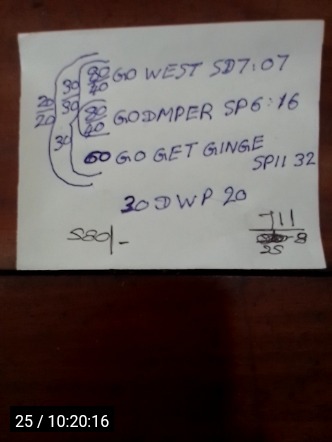 80
40 GO WEST SD7:07
30
20 80
20 30 40 GODMPER SP6:16
30 60 GO GET GINGE
SP11 32
30 DWP 20
580/-
711
8
25
25 / 10:20:16